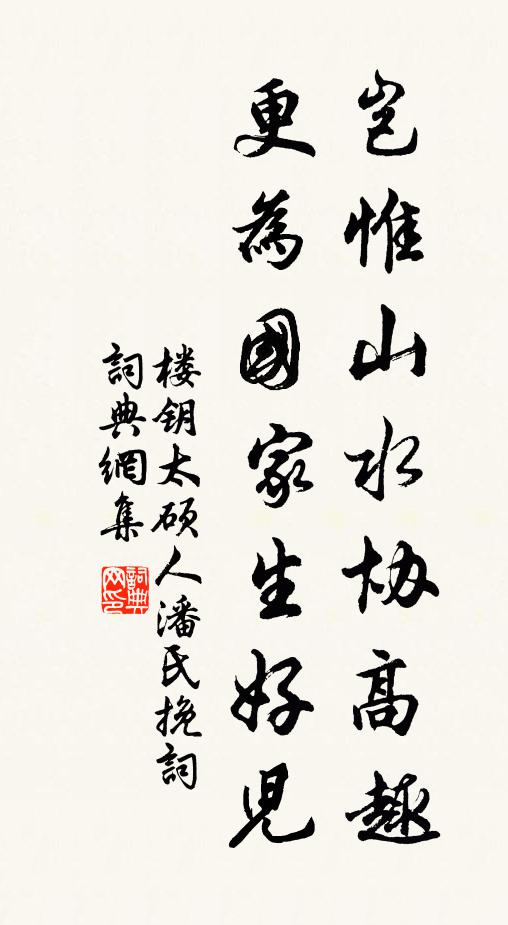 岂惟山水协高趣
更為國家生好児
楼钥太硕人潘氏挽詞
詞典網集
詞典
网印